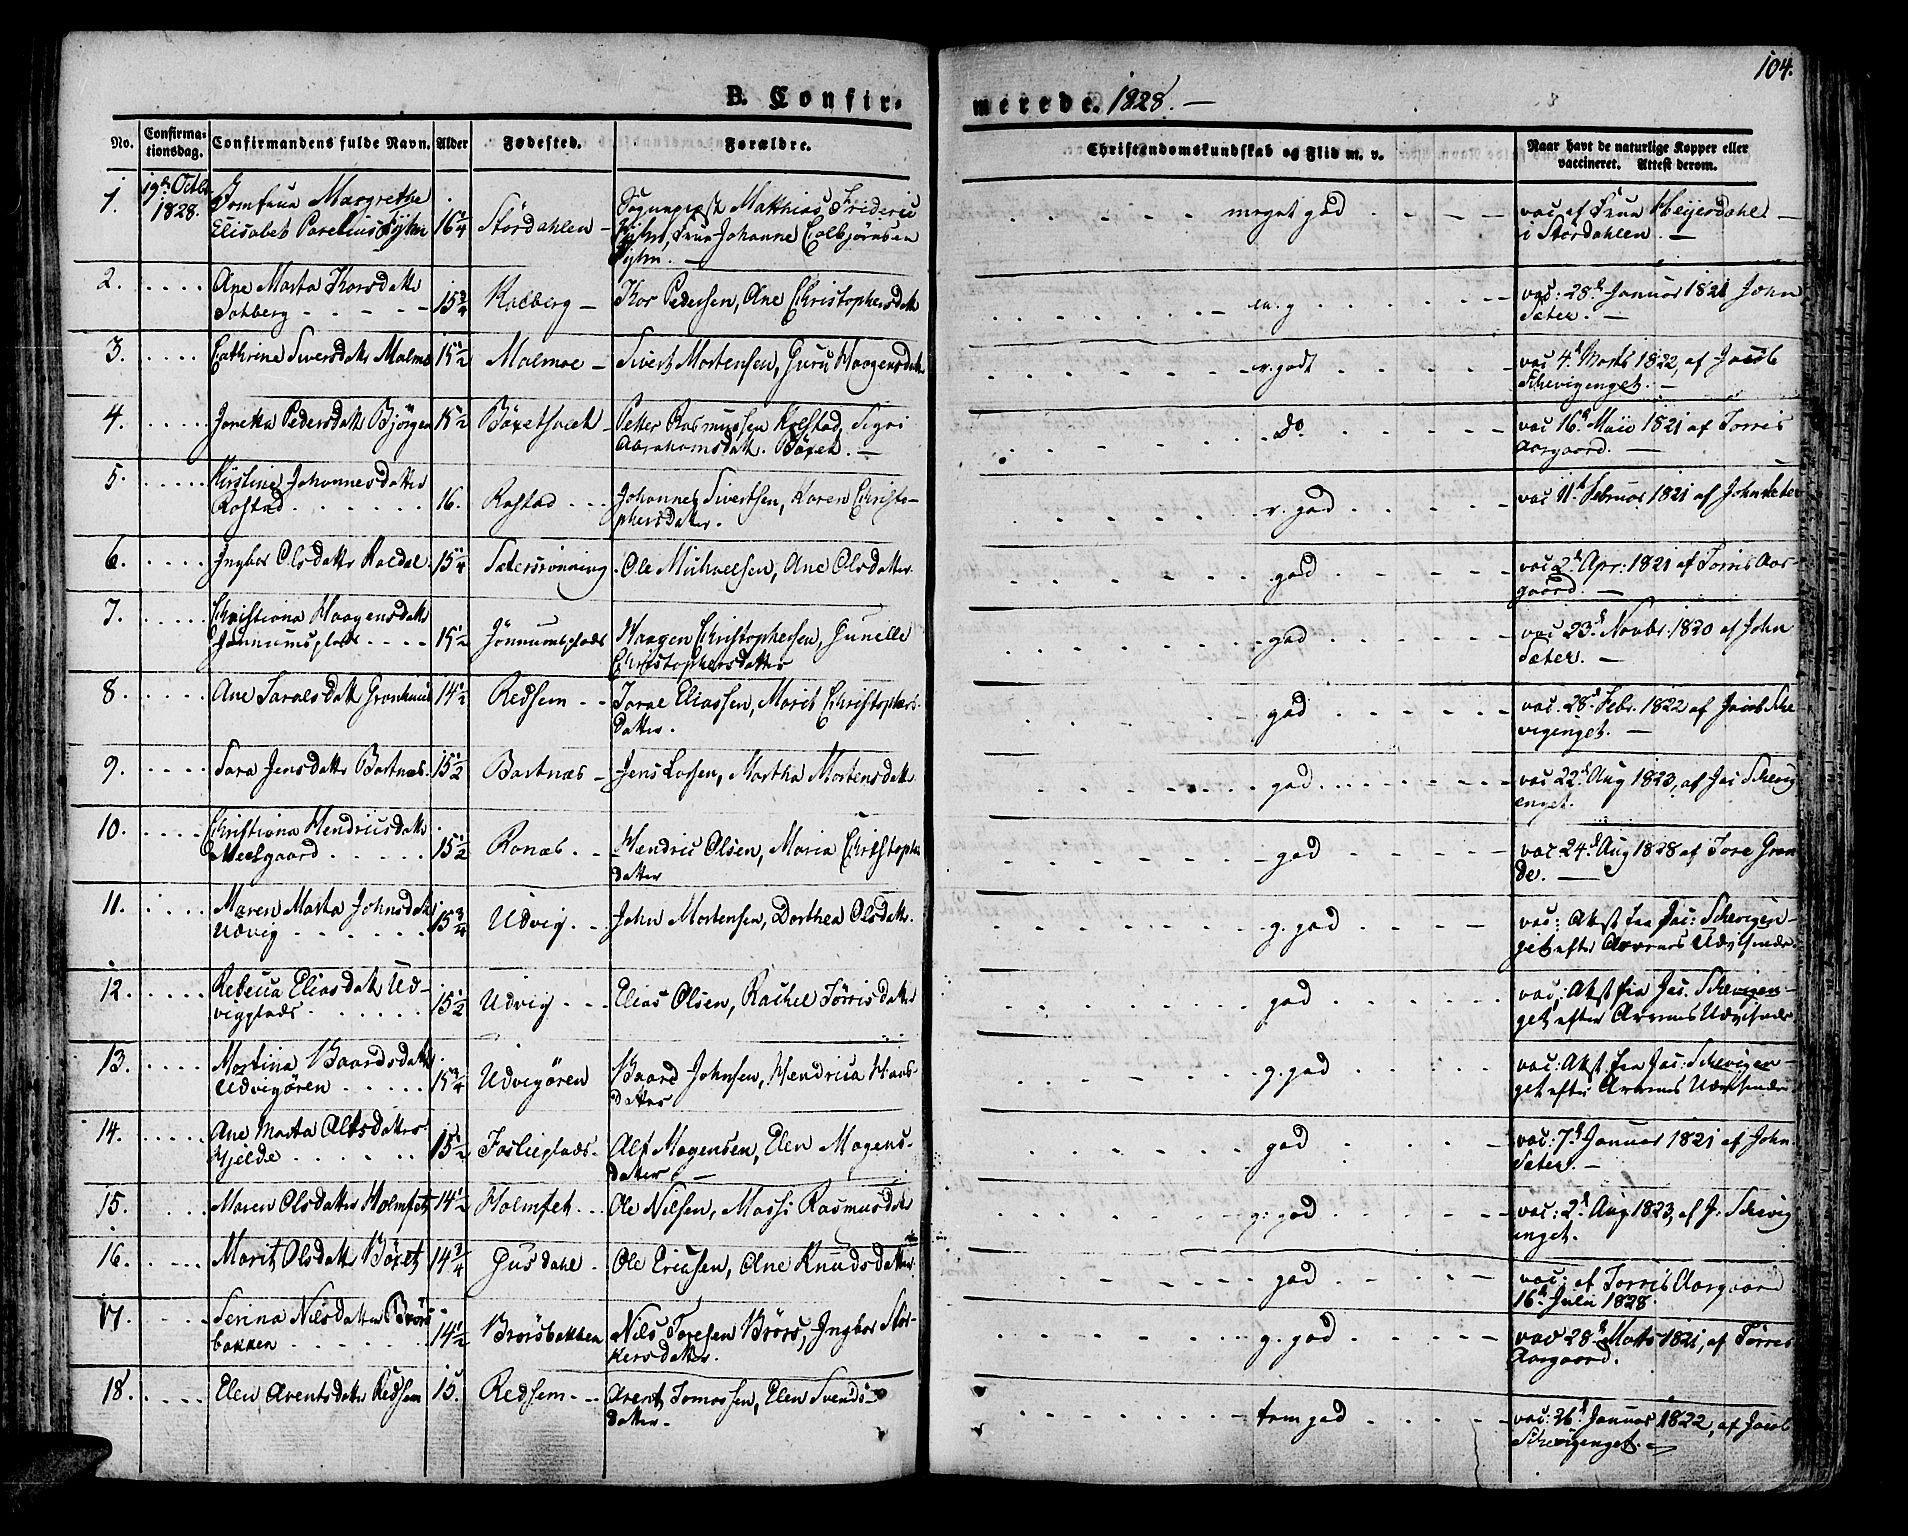 104.
B. Confirmerede. 1828. —
No. Confirmationsdag. Confirmandens fulde Navn. Alder Fødested. Forældre. Christendomskundskab og Flid m. v. Naar havt de naturlige Kopper eller vaccineret. Attest derom.
1. 19de Octbr 1828. Jomfrue Margrethe
Elisabet Parelius 16 1/4 Stördahlen — Sognepræst Matthias Frideric
Johanne Colbjørnsen
meget god vac af Frue Meijerdahl —
i Stördahlen. —
2. Ane Marta Korsdatter
15 3/4 Kolberg — Kor Pedersen, Ane Christophersdatter
m. g vac: 28d Januar 1821 John
Sæter. —
3. Cathrine Siversdatter Malmo 15 1/2 Malmoe — Sivert Mortensen, Guru Haagensdatter
r. godt vac 4d Marts 1822, af Jacob
Schevigenget. —
4. Jonetta Pedersdatter Bjørgen 15 1/2 Petter Rasmussen Kolstad, Sigri
Abrahamsdatt. Böxet. —
do vac 16d Maii 1821 af Torris
Aargaard. —
5. Kirstine Johannesdatter
Rostad 16. Rostad Johannes Sivertsen, Karen Christo-
phersdatter.
r. god vac 11d Februar 1821 af John Sæter
6. Ingbor Olsdatter Roldal 15 1/4 Sætersrønning Ole Michaelsen, Ane Olsdatter
god vac 2d Apr: 1821 af Torris Aar-
gaard. —
7. Christiana Haagensdatter
Jönnumsplads 15 1/2 Jönnumsplads Haagen Christophersen, Gunille
Christophersdatter
god vac 23d Novbr. 1820 af John
Sæter. —
8. Ane Taralsdatt 14 1/2 Redsem Tarae Eliassen, Marit Christophers-
datter.
god vac. 28d Febr. 1822 af Jacob Sche
vigenget. —
9. Sara Jensdatter Bartnæs 15 1/2 Bartnæs — Jens Larsen, Martha Mortensdatter
god vac 22d Aug 1823, af Jac Schevig
enget.
10. Christiana Hendricsdatter
Meelgaard 15 1/2 Ronæs Hendric Olsen, Maria Christophe
datter
god vac 24d Aug 1828 af Tore Gran
de. —
11. Maren Marta Johnsdatt
Udvig 15 3/4 Udvig John Mortensen, Dorthea Olsdatter.
g. god vac: Attest fra Jac: Schevigen-
get efter
12. Rebecca Eliasdatt Ud-
vigplads 15 1/2 Udvig Elias Olsen, Rachel Törrisdatter
god vac: Attest fra Jac. Schevigen-
get efter
13. Martina Baardsdatter
Udvigören 15 3/4 Udvigören Baard Johnsen, Hendrica Hans-
datter
g. god vac: Attest fra Jac: Schevigen-
get efter
14. Ane Marta Alfsdatter
Hjelde 15 1/2 Faslieplads Alf Mogensen, Elen Mogens-
datter. —
god vac: 7d Januar 1821 af John
Sæter. —
15. Maren Olsdatter Holmset 14 1/2 Holmset Ole Nilsen, Massi Rasmusdatt
g. god vac: 2d Aug 1823, af J. Schevig
enget.
16. Marit Olsdatter Böxet 14 3/4 Gusdahl Ole Ericksen, Ane Knudsdatter.
god vac: af Torris Aargaard
16d Julii 1828.
17. Serina Nilsdatter Brørs
bakken 14 1/2 Brørsbakken Nils Toresen Brørs, Ingbor Stør-
kersdatter.
g. god vac 28d Marts 1821, af Törris
Aargaard.
18. Elen Arentsdatter Redsem 15. Redsem Arent Tomassen, Elen Svends-
datter.
tem god vac: 26d Januar 1822, af Jacob
Schevigenget. —